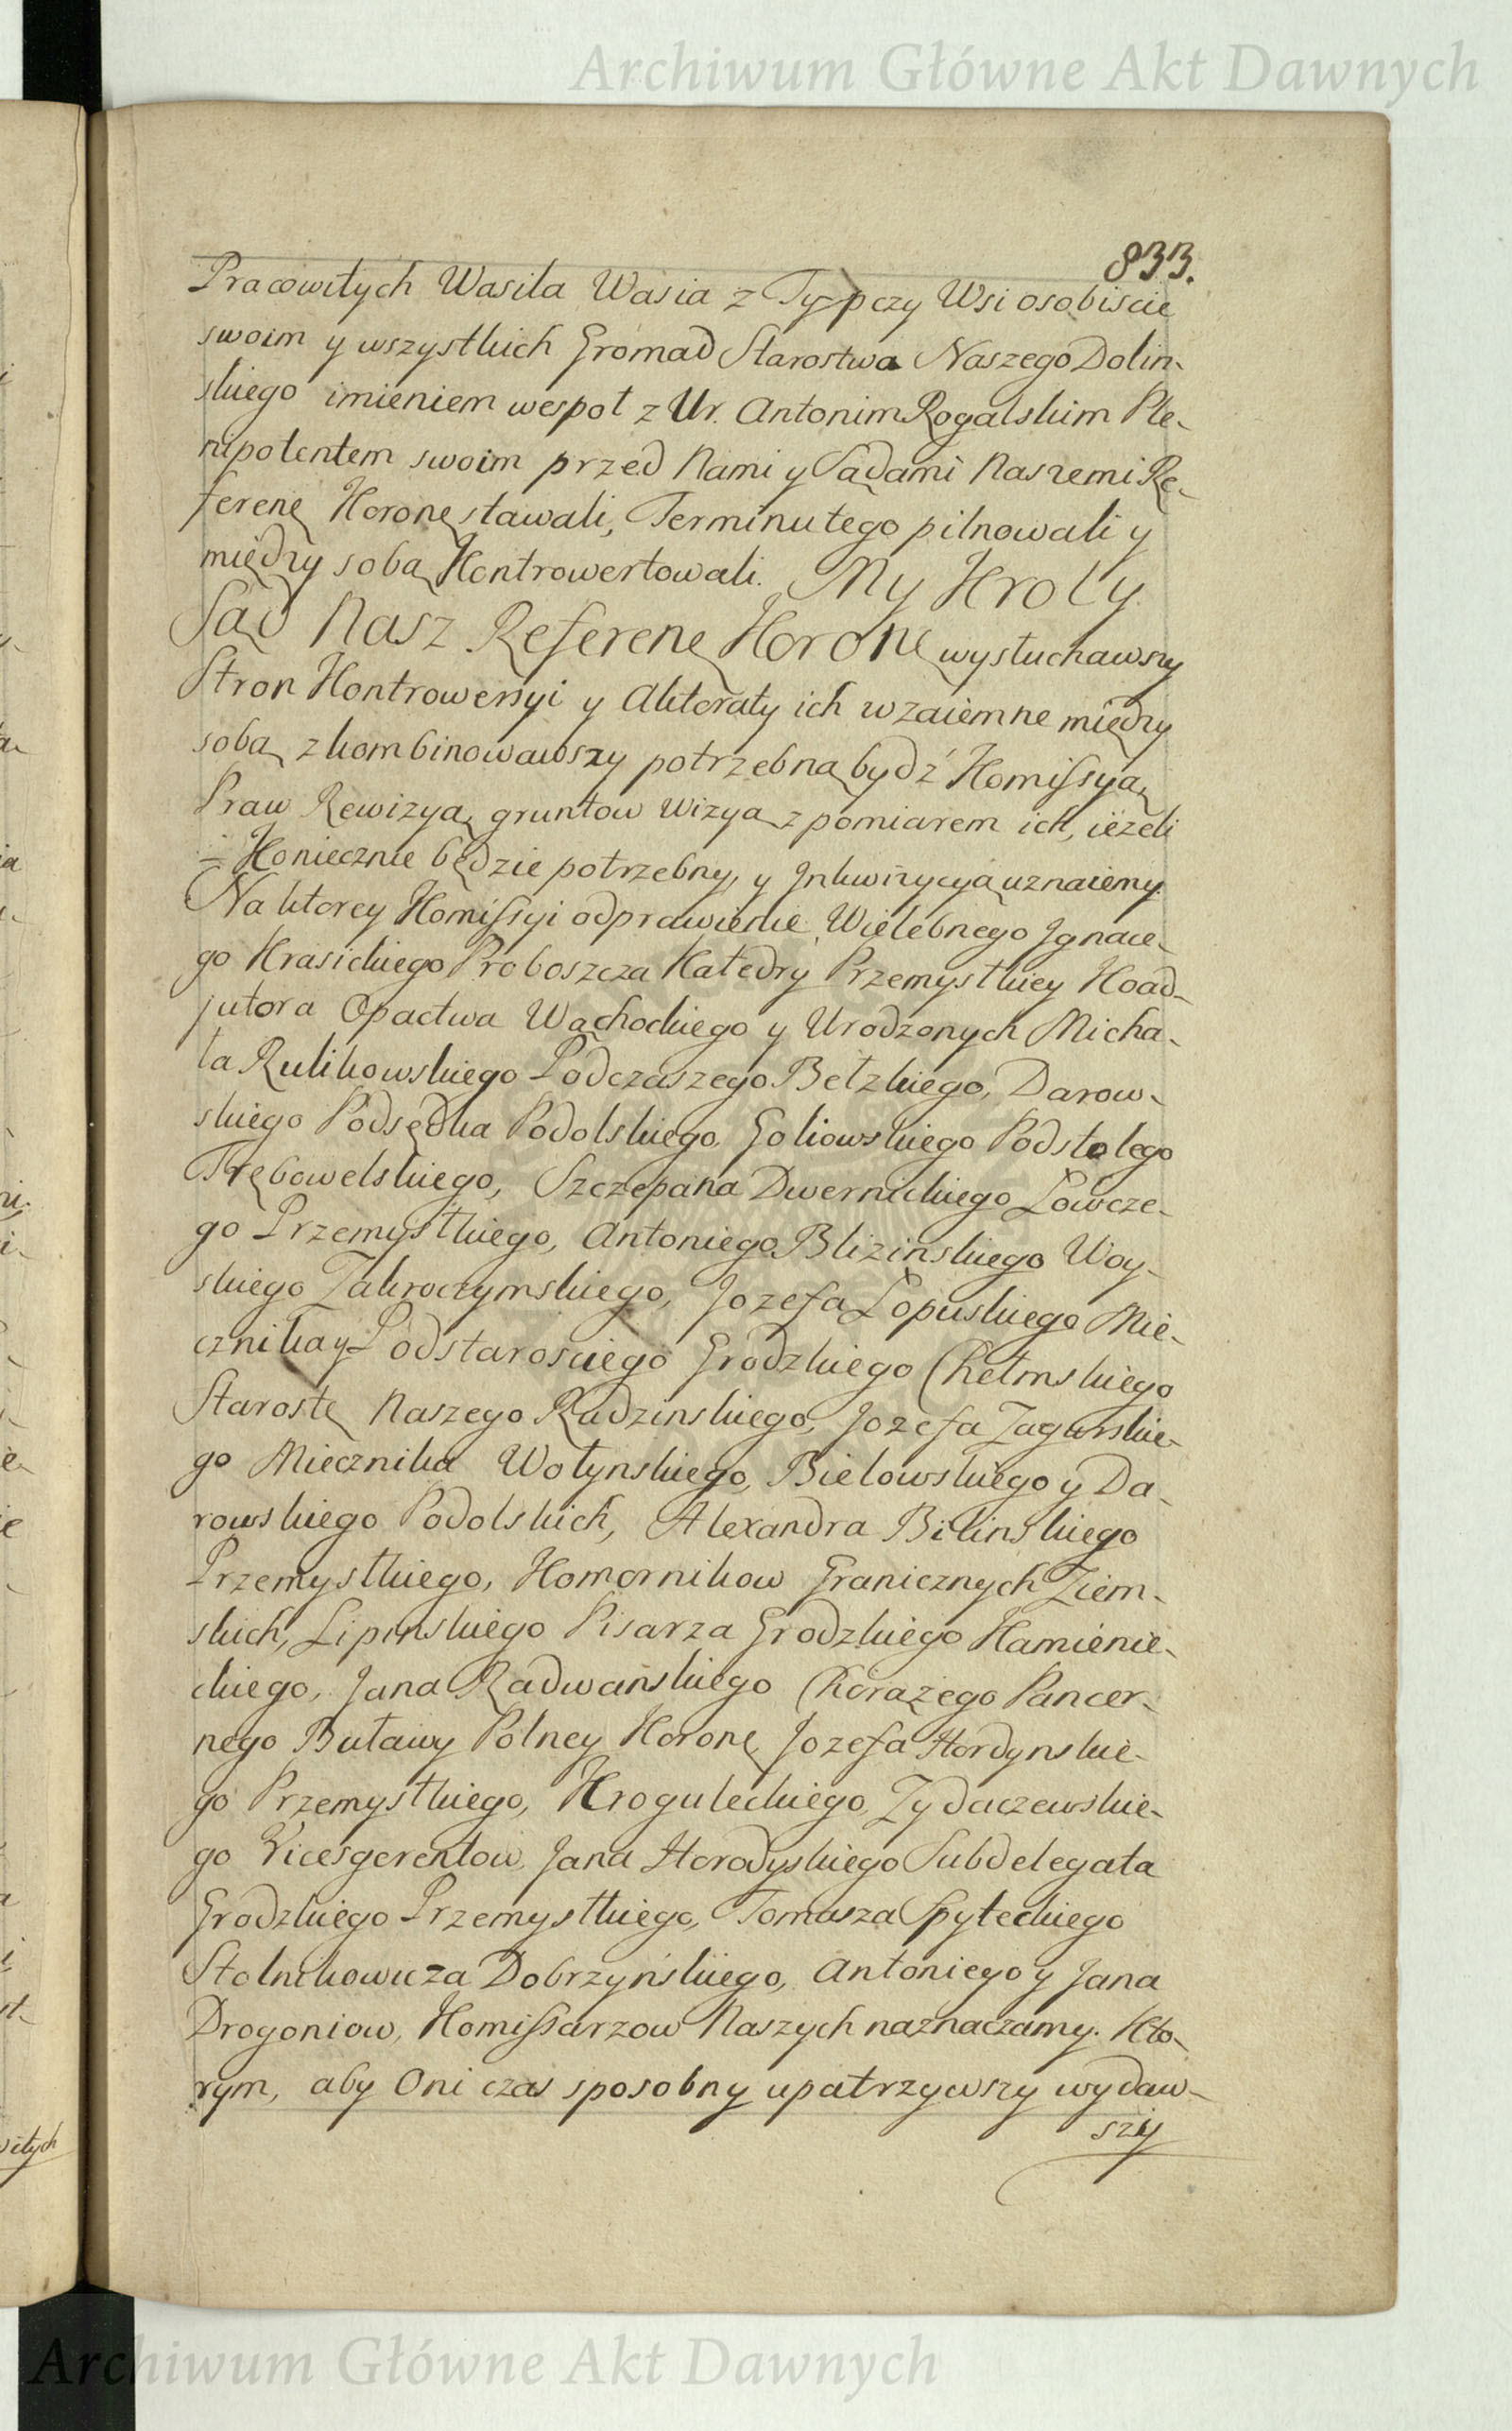 Archiwum Główne Akt Dawnych
833.
Pracowitych Wasila Wasia z Typczy Wsi osobiscie
swoim y wszystkich Gromad Starostwa Naszego Dolin-
skiego imieniem wespoł z Ur. Antonim Rogalskim Ple-
nipotentem swoim przed Nami y Sądami Naszemi Re-
ferenę Koronę stawali, Terminu tego pilnowali y
między sobą Kontrowertowali. My Krol y
Sąd Nasz Referenę Koronę wysłuchawszy
Stron Kontrowersyi y Aktoraty ich wzaiemne między
sobą zkombinowawszy potrzebną bydź Komissyą,
Praw Rewizyą, gruntow Wizyą z pomiarem ich, ieżeli
Koniecznie będzie potrzebny, y Inkwizycyą uznaiemy.
Na ktorey Komissyi odprawienie Wielebnego Ignace-
go Krasickiego Proboszcza Katedry Przemyskiey Koad-
jutora Opactwa Wąchockiego y Urodzonych Micha-
ła Rulikowskiego Podczaszego Bełzkiego, Darow-
skiego Podsędka Podolskiego, Goliowskiego Podstolego
Trębowelskiego, Szczepana Dwernickiego Łowcze-
go Przemysłkiego, Antoniego Blizinskiego Woy-
skiego Zakroczymskiego, Jozefa Łopuskiego Mie-
cznika y Podstarosciego Grodzkiego Chełmskiego
Starostę Naszego Radzinskiego, Jozefa Zagurskie-
go Miecznika Wołynskiego, Bielowskiego y Da-
rowskiego Podolskich, Alexandra Bilinskiego
Przemysłkiego, Komornikow Granicznych Ziem-
skich, Lipinskiego Pisarza Grodzkiego Kamienie-
ckiego, Jana Radwanskiego Chorążego Pancer-
nego Buławy Polney Koronę, Jozefa Hordynskie-
go Przemysłkiego, Kroguleckiego, Zydaczewskie-
go Vicesgerentow, Jana Horodyskiego Subdelegata
Grodzkiego Przemysłkiego, Tomasza Spyteckiego
Stolnikowicza Dobrzyńskiego, Antoniego y Jana
Drogoniow, Komissarzow Naszych naznaczamy. Kto-
rym, aby Oni czas sposobny upatrzywszy wydaw-
szy
Archiwum Główne Akt Dawnych